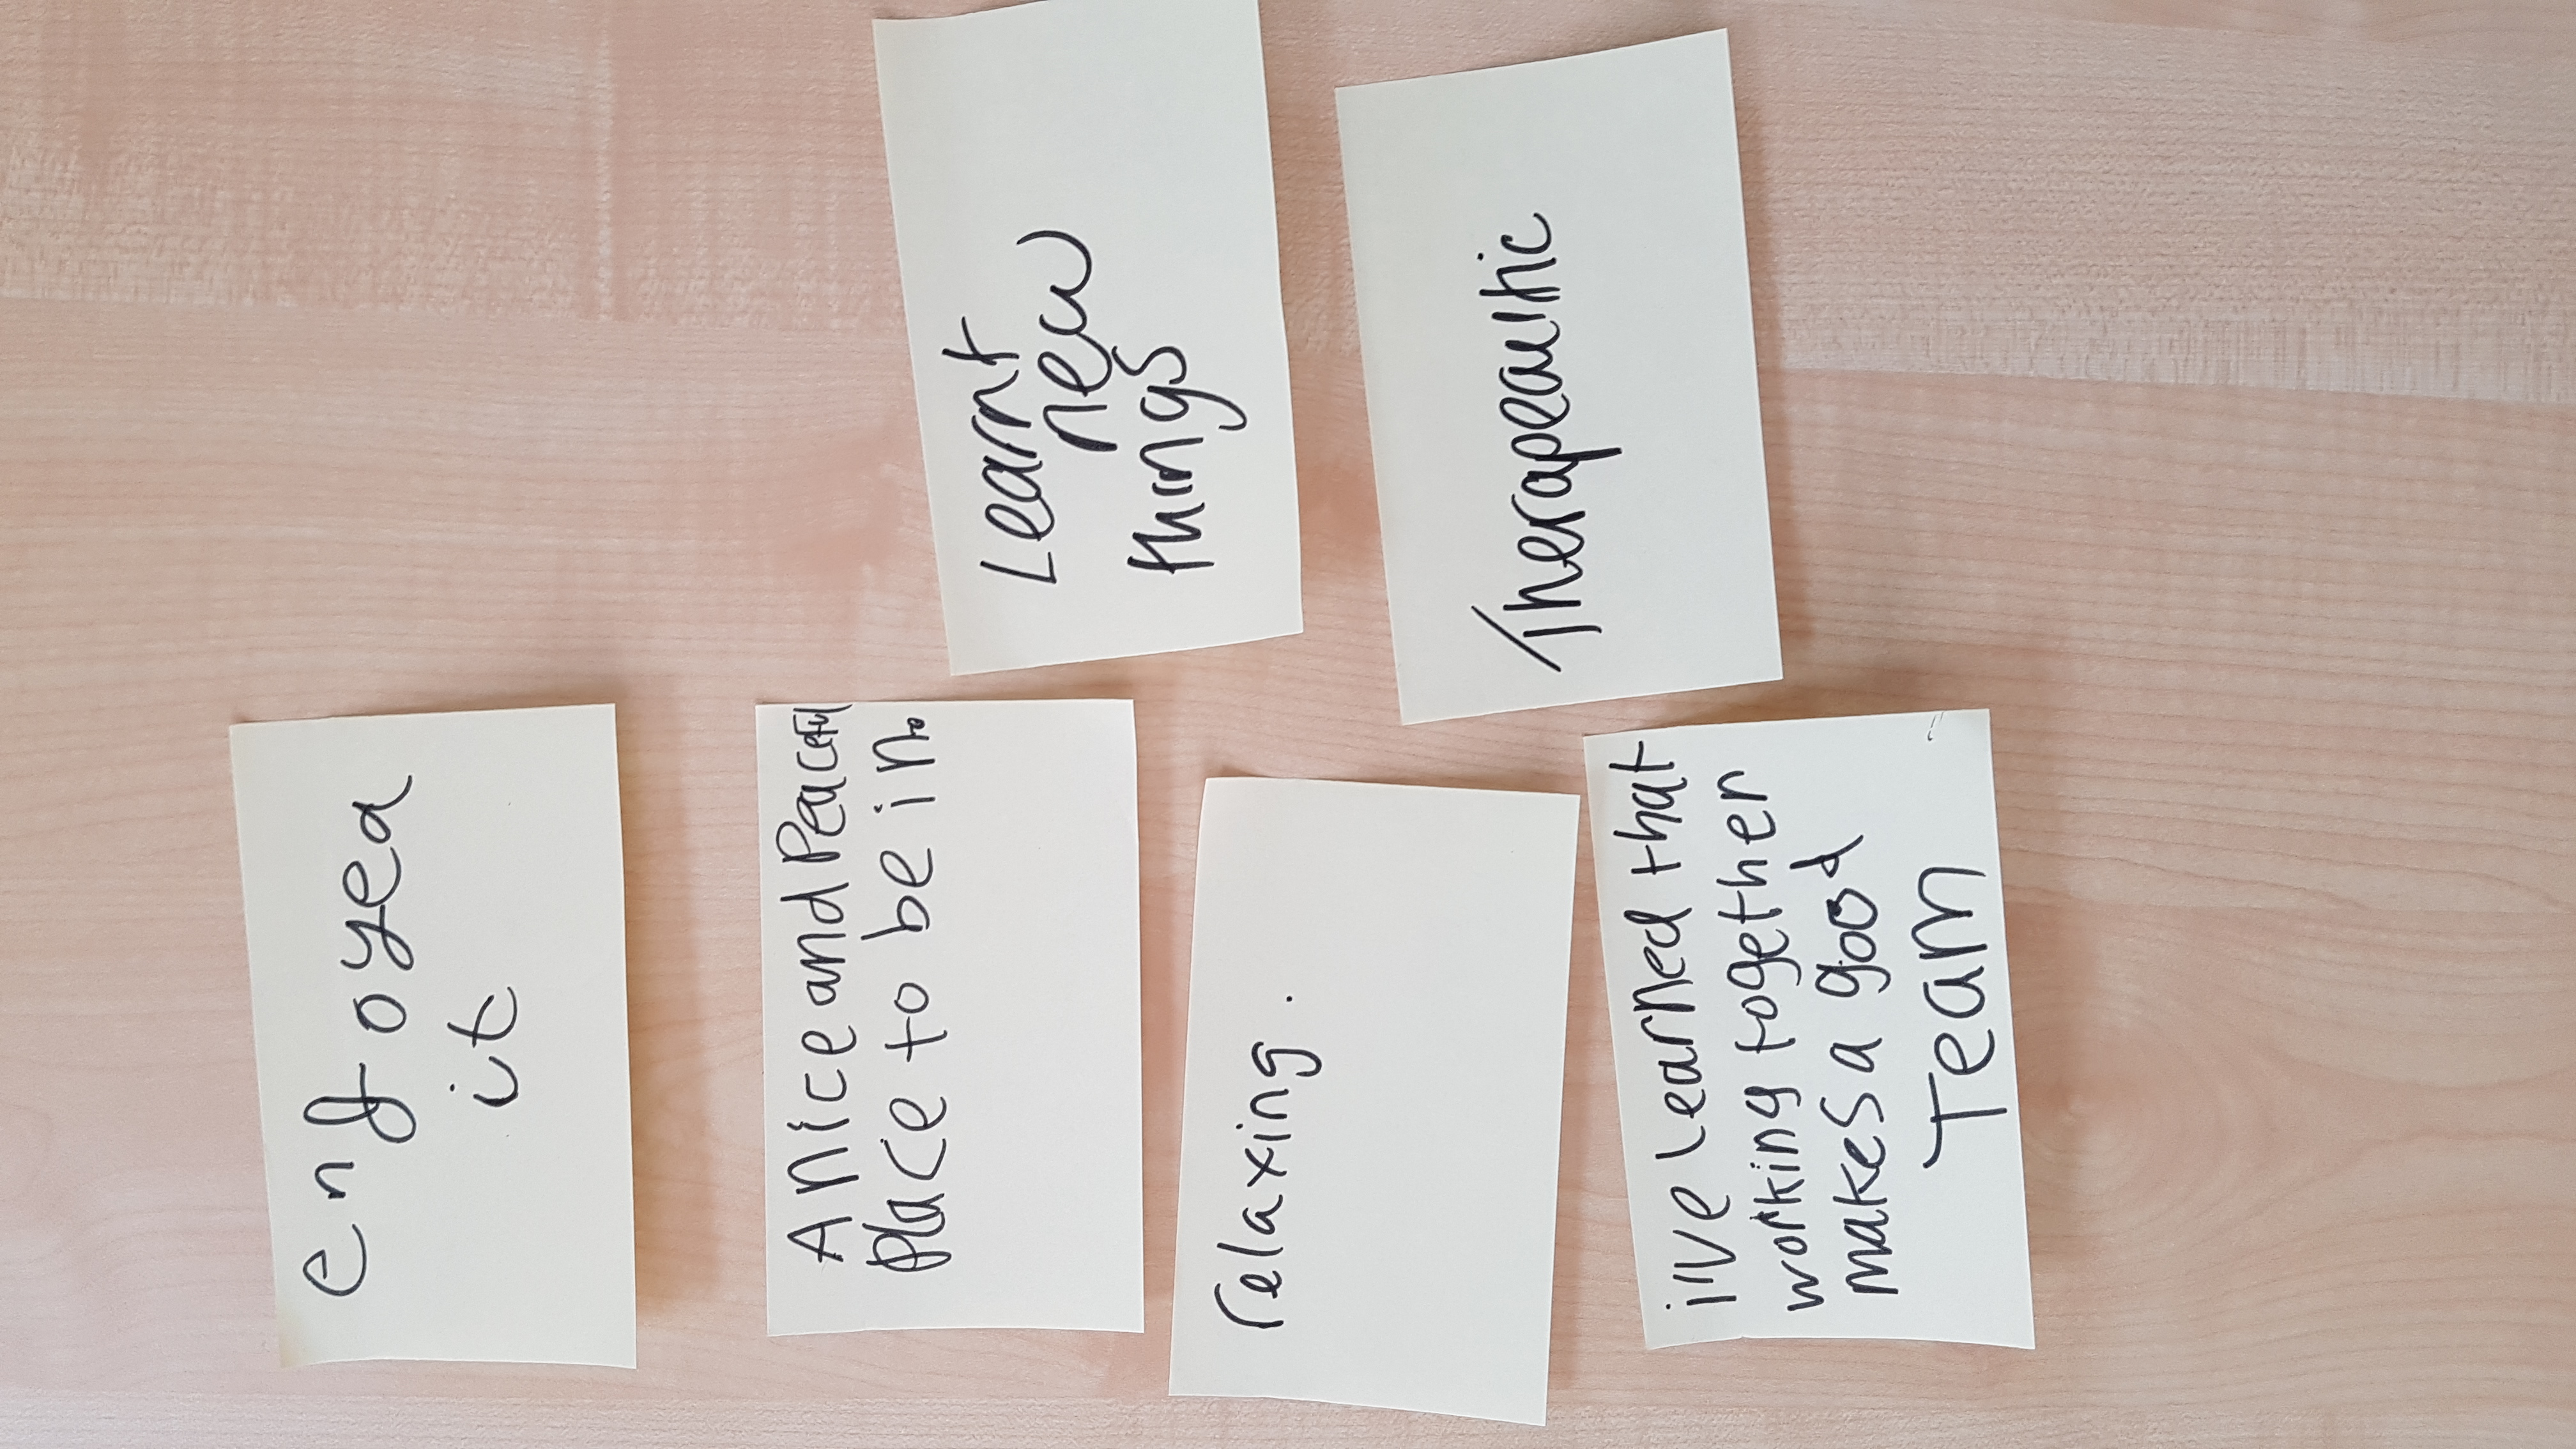 enjoyed
it
A nice and Peaceful
place to be in.
relaxing.
i've learned that
working together
makes a good
Team
Learnt
new
things
Therapeauthic